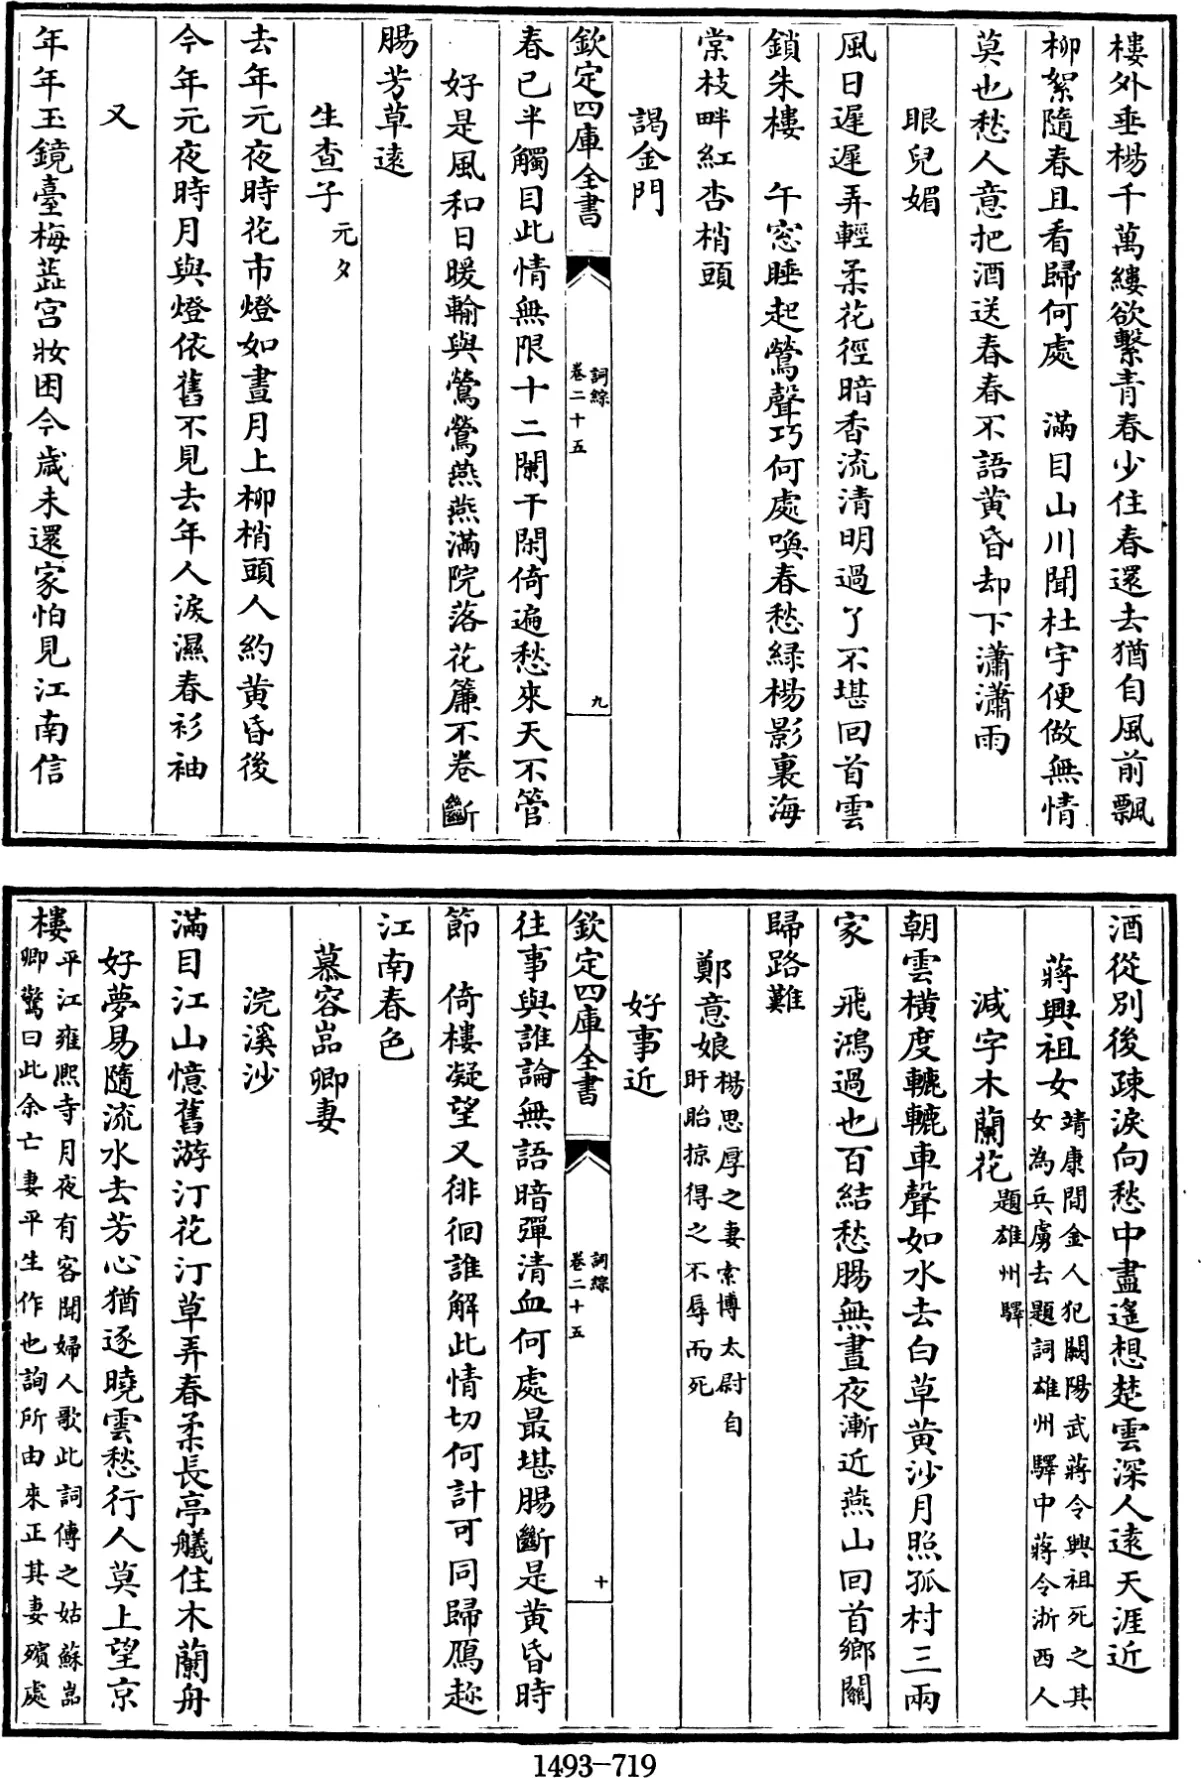 樓外垂楊千萬縷欲繫青春少住春還去猶自風前飄
柳絮隨春且看歸何處　滿目山川聞杜宇便做無情
莫也愁人意把酒送春春不語黄昏却下瀟瀟雨
眼兒媚
風日遲遲弄輕柔花徑暗香流清明過了不堪回首雲
鎖朱樓　午窓睡起鶯聲巧何處喚春愁緑楊影裏海
棠枝畔紅杏梢頭
謁金門
欽定四庫全書　詞綜卷二十五　九
春已半觸目此情無限十二闌干閑倚遍愁來天不管
好是風和日暖輸與鶯鶯燕燕滿院落花簾不卷斷
腸芳草遠
生查子元夕
去年元夜時花市燈如晝月上柳梢頭人約黄昏後
今年元夜時月與燈依舊不見去年人淚濕春衫袖
又
年年玉鏡臺梅蕋宫妝困今歲未還家怕見江南信
酒從别後疎淚向愁中盡遥想楚雲深人遠天涯近
蔣興祖女靖康間金人犯闕陽武蔣令興祖死之其
女為兵虜去題詞雄州驛中蔣令浙西人
減字木蘭花題雄州驛
朝雲横度轆轆車聲如水去白草黄沙月照孤村三兩
家　飛鴻過也百結愁腸無晝夜漸近燕山回首鄉關
歸路難
鄭意娘楊思厚之妻索博太尉自
盱眙掠得之不辱而死
好事近
欽定四庫全書　詞綜卷二十五　十
往事與誰論無語暗彈清血何處最堪腸斷是黄昏時
節　倚樓凝望又徘徊誰解此情切何計可同歸鴈趂
江南春色
慕容嵓卿妻
浣溪沙
滿目江山憶舊游汀花汀草弄春柔長亭艤住木蘭舟
好夢易隨流水去芳心猶逐曉雲愁行人莫上望京
樓平江雍熙寺月夜有客聞婦人歌此詞傳之姑蘇嵓
卿驚曰此余亡妻平生作也詢所由來正其妻殯處
1493-719